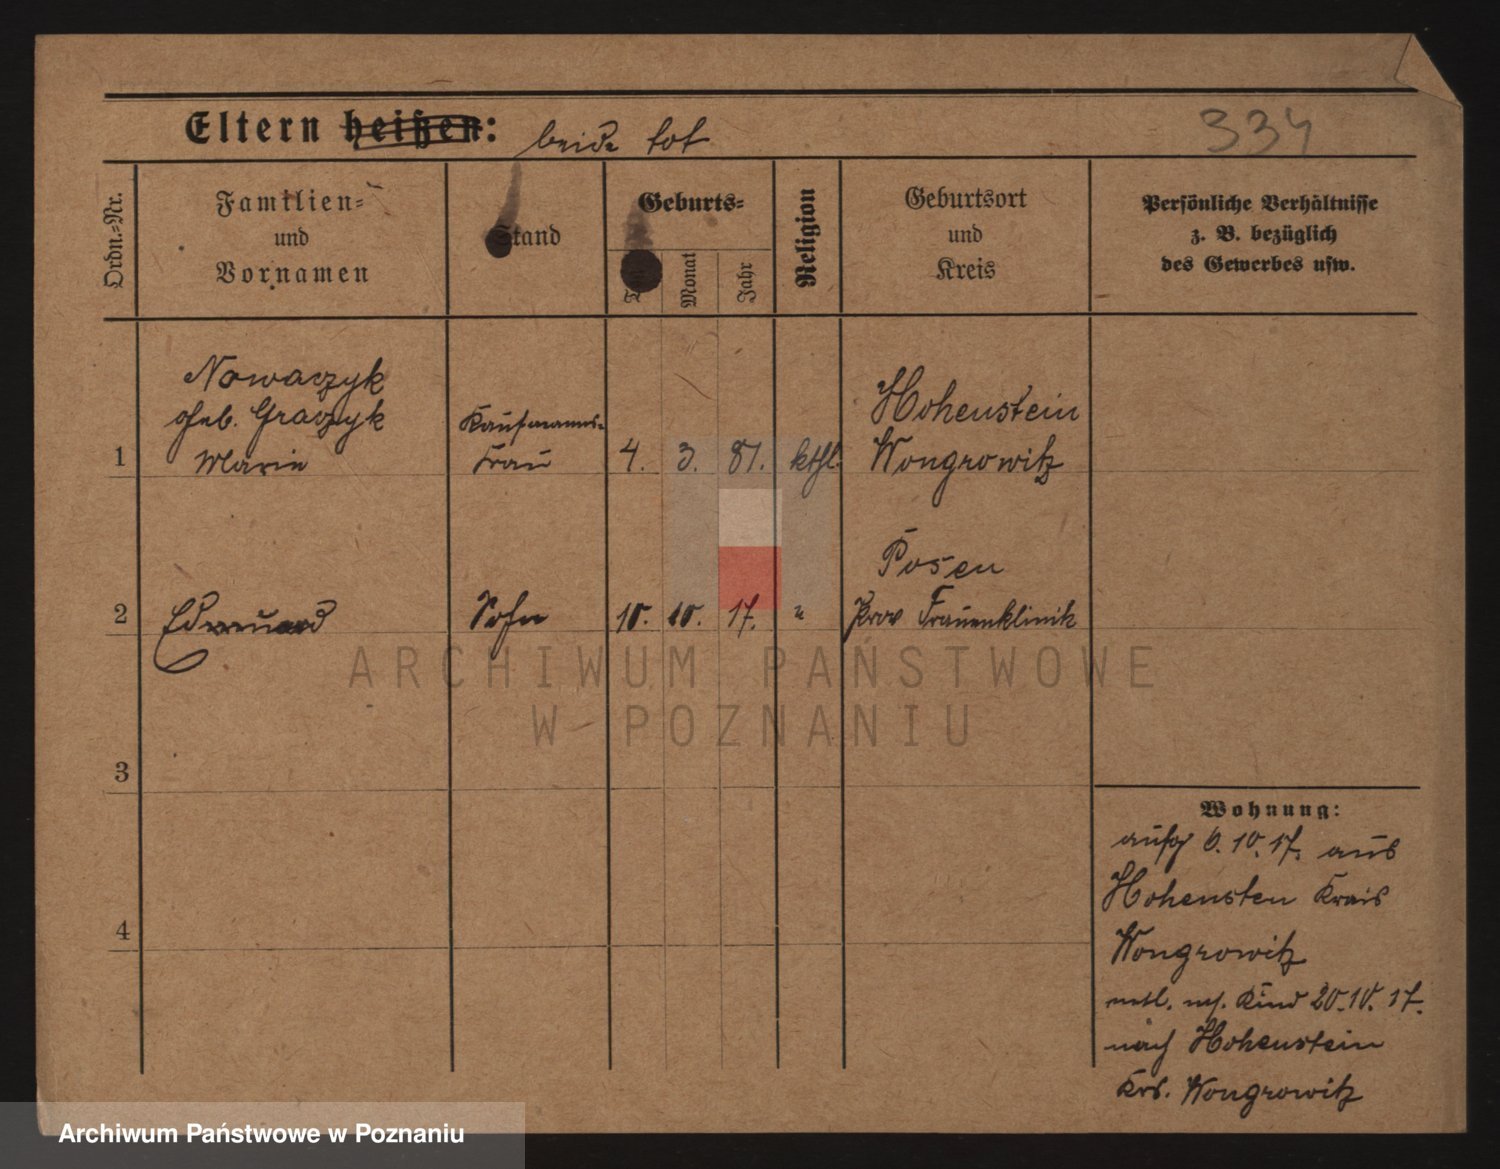 Eltern heißen: beide tot
334
Ordn.-Nr.
Familien-
und
Vornamen
Stand
Geburts-
Tag
Monat
Jahr
Religion
Geburtsort
und
Kreis
Persönliche Verhältnisse
z. B. bezüglich
des Gewerbes usw.
1
Nowaczyk
geb. Graczyk
Marie
Kaufmanns-
Frau
4. 3. 81. kthl.
Hohenstein
Wongrowitz
2
Edmund
Sohn
10. 10. 17. "
Posen
Prov Frauenklinik
3
4
Wohnung:
aufg 6. 10. 17. aus
Hohensten Kreis
Wongrowitz
entl. m. Kind 20. 10. 17.
nach Hohenstein
Krs. Wongrowitz
ARCHIWUM PAŃSTWOWE
W POZNANIU
Archiwum Państwowe w Poznaniu